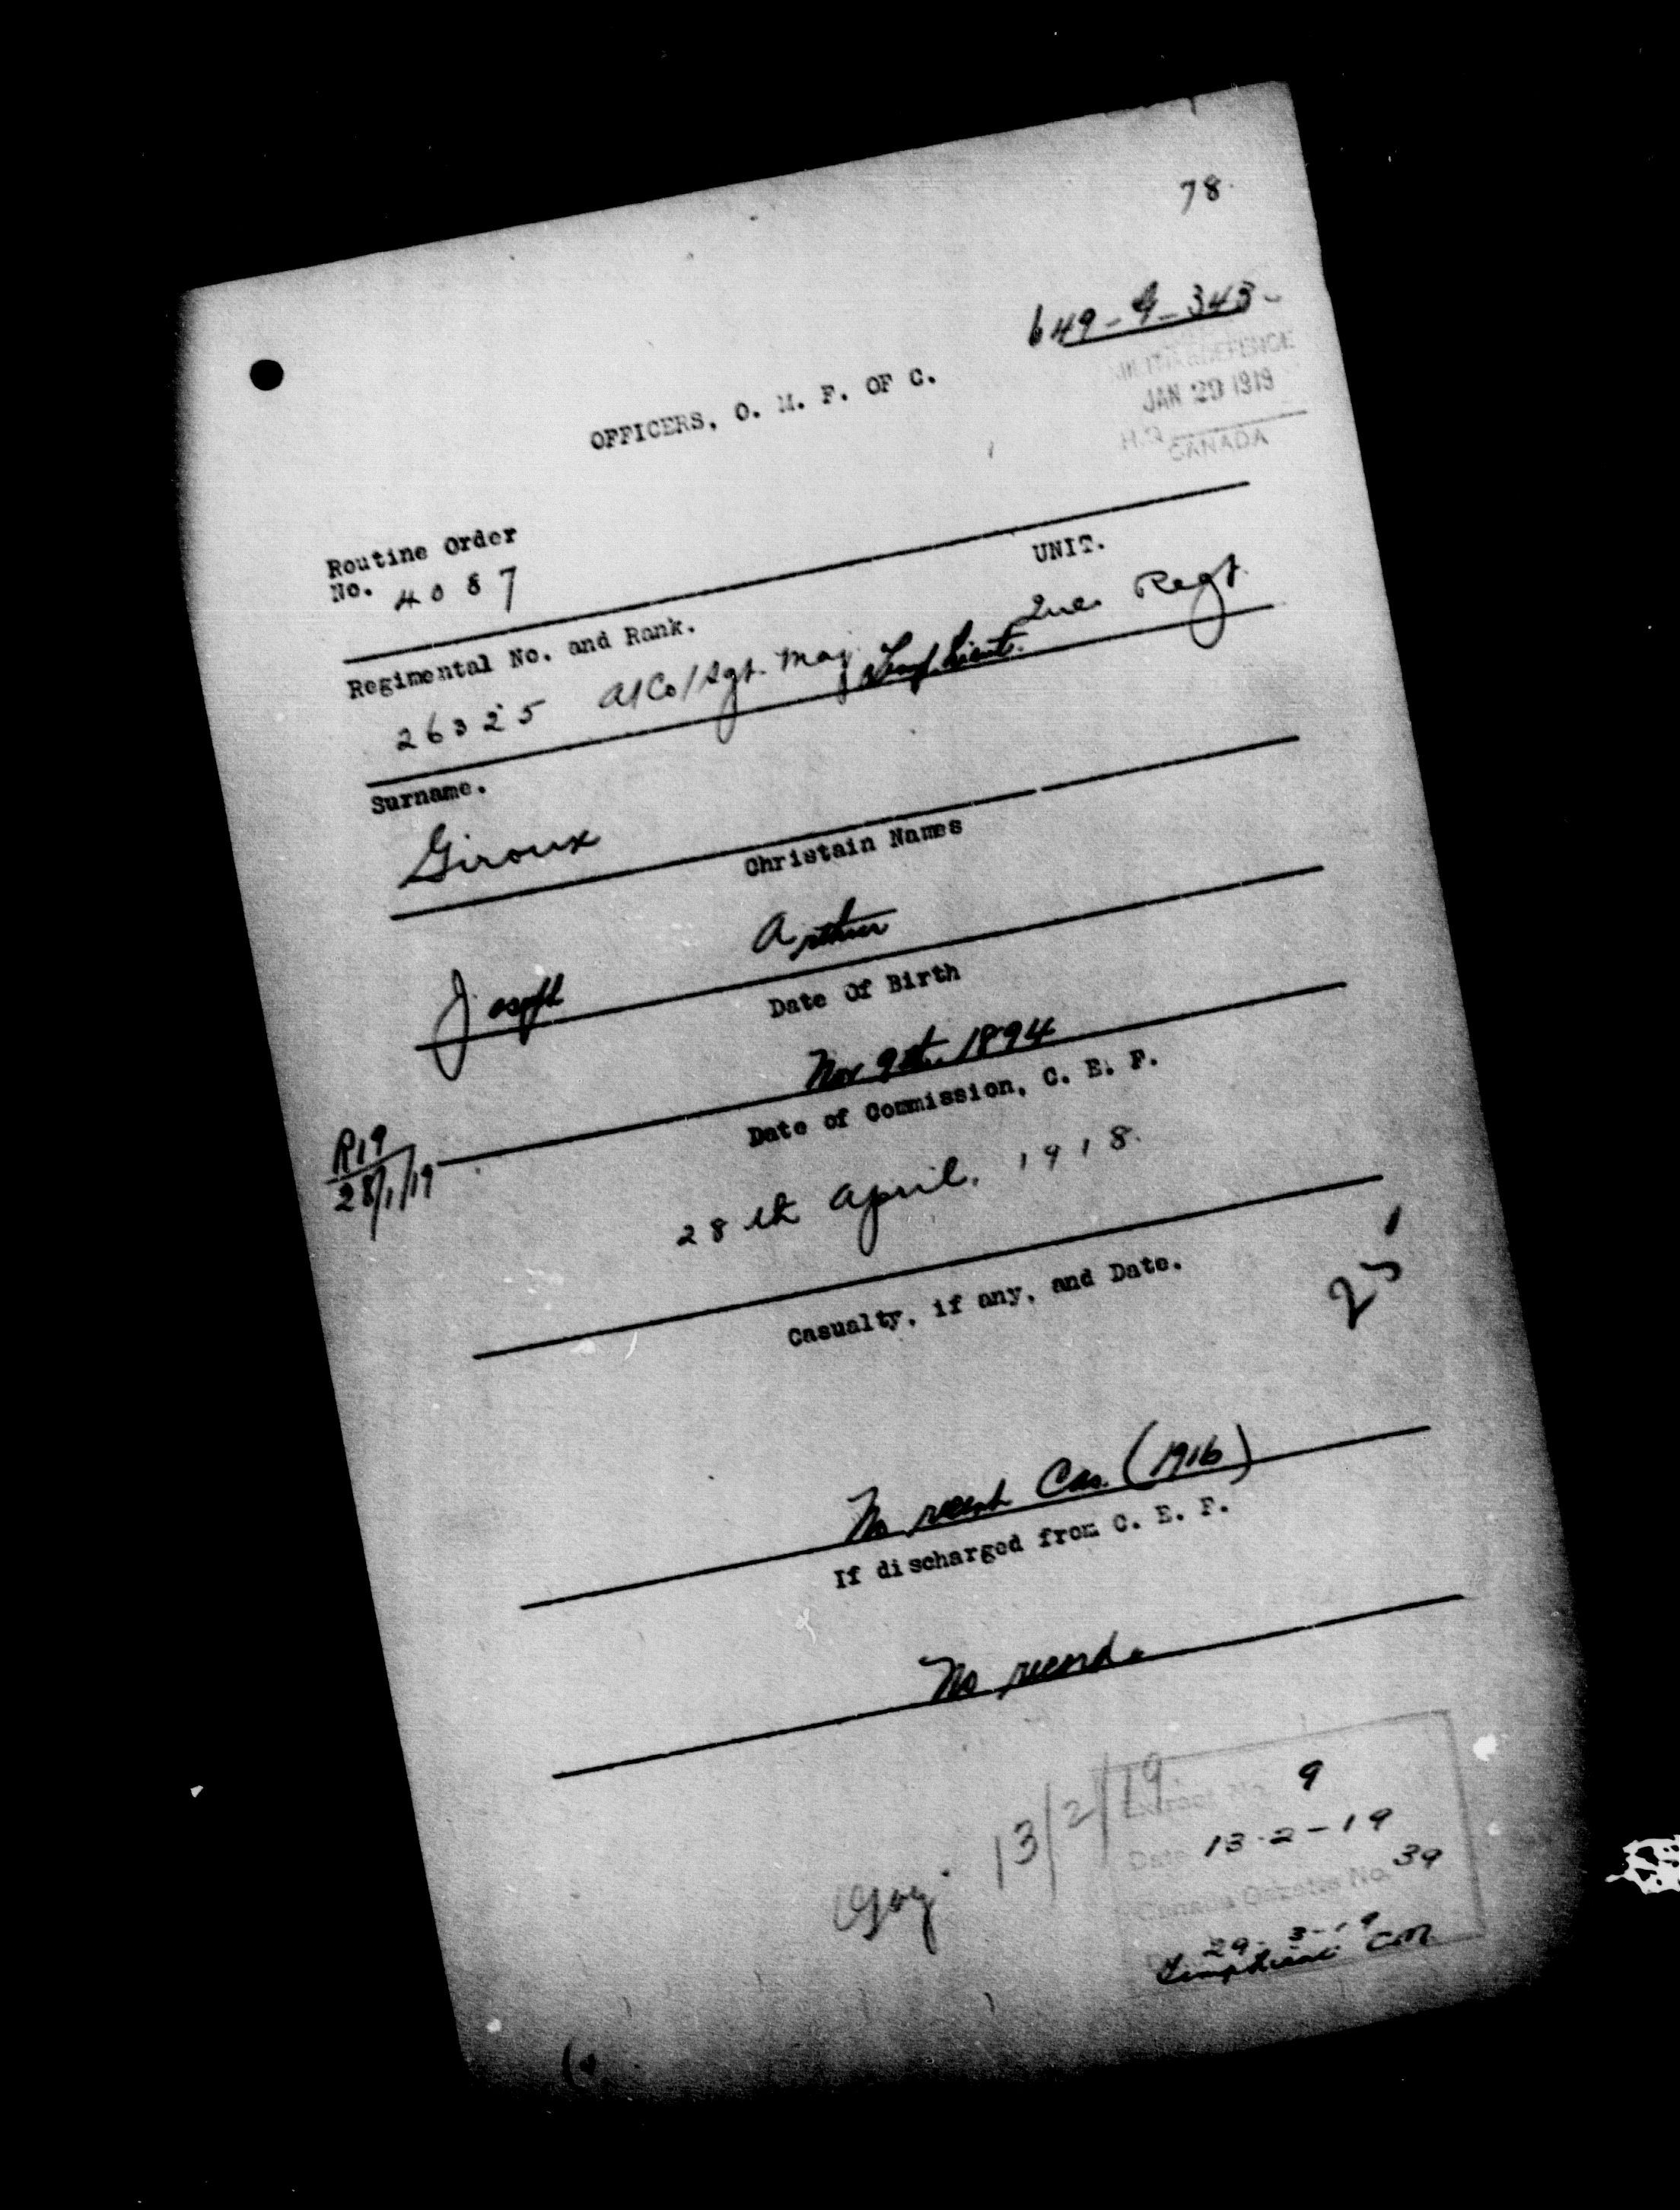 78
649-G-343-
MILITIA & DEFENCE
JAN 29 1919
H.Q.
CANADA
OFFICERS, O. M. F. OF C.
Routine Order
No. 4087
UNIT.
Que. Regt.
Regimental No. and Rank.
26325 A/Co/Sgt. Maj. Temp Lieut.
Surname.
Giroux
Christain Names
Joseph Arthur
Date Of Birth
Nov 9th. 1894
Date of Commission, C. E. F.
R19
28/1/19
28th April, 1918.
Casualty, if any, and Date.
25
No recent Cas. (1916)
If discharged from C. E. F.
No record.
13/2/19
Extract No. 9
Date 13-2-19
Canada Gazette No. 39
29-3-19
Temp Lieut